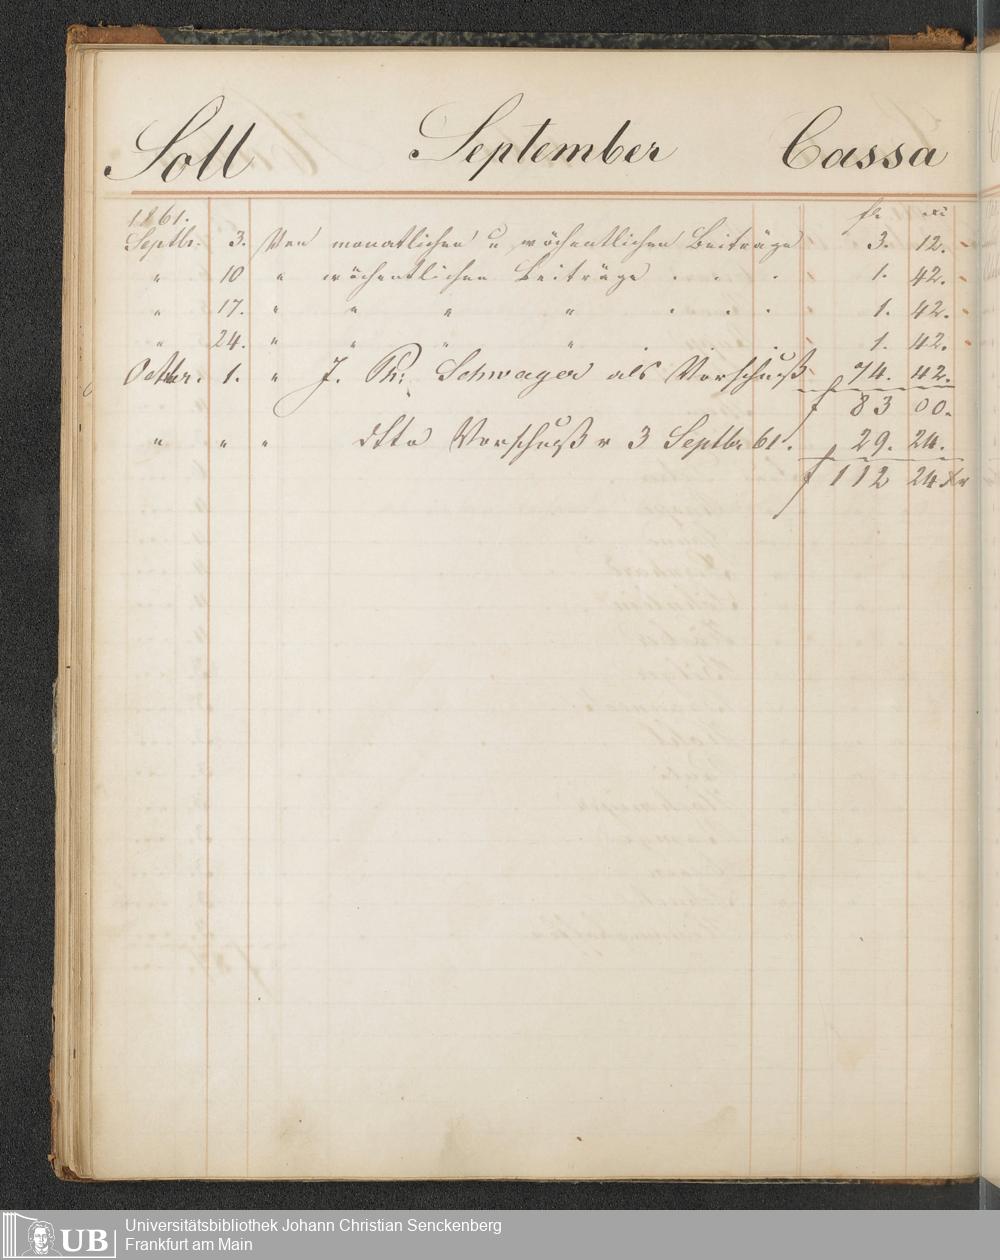 Soll September Cassa
1861. fl. xr
Septbr. 3. Von monatlichen u wöchentlichen Beiträge 3. 12.
" 10 " wöchentlichen Beiträge . . . 1. 42.
" 17. " " " " . . . 1. 42.
" 24. " " " " . . . 1. 42.
Octbr. 1. " J. Ph: Schwager als Vorschuß 74. 42.
f 83 00.
" " " dtto Vorschuß v 3 Septbr 61. f 29. 24.
f 112 24 xr
UB Universitätsbibliothek Johann Christian Senckenberg
Frankfurt am Main